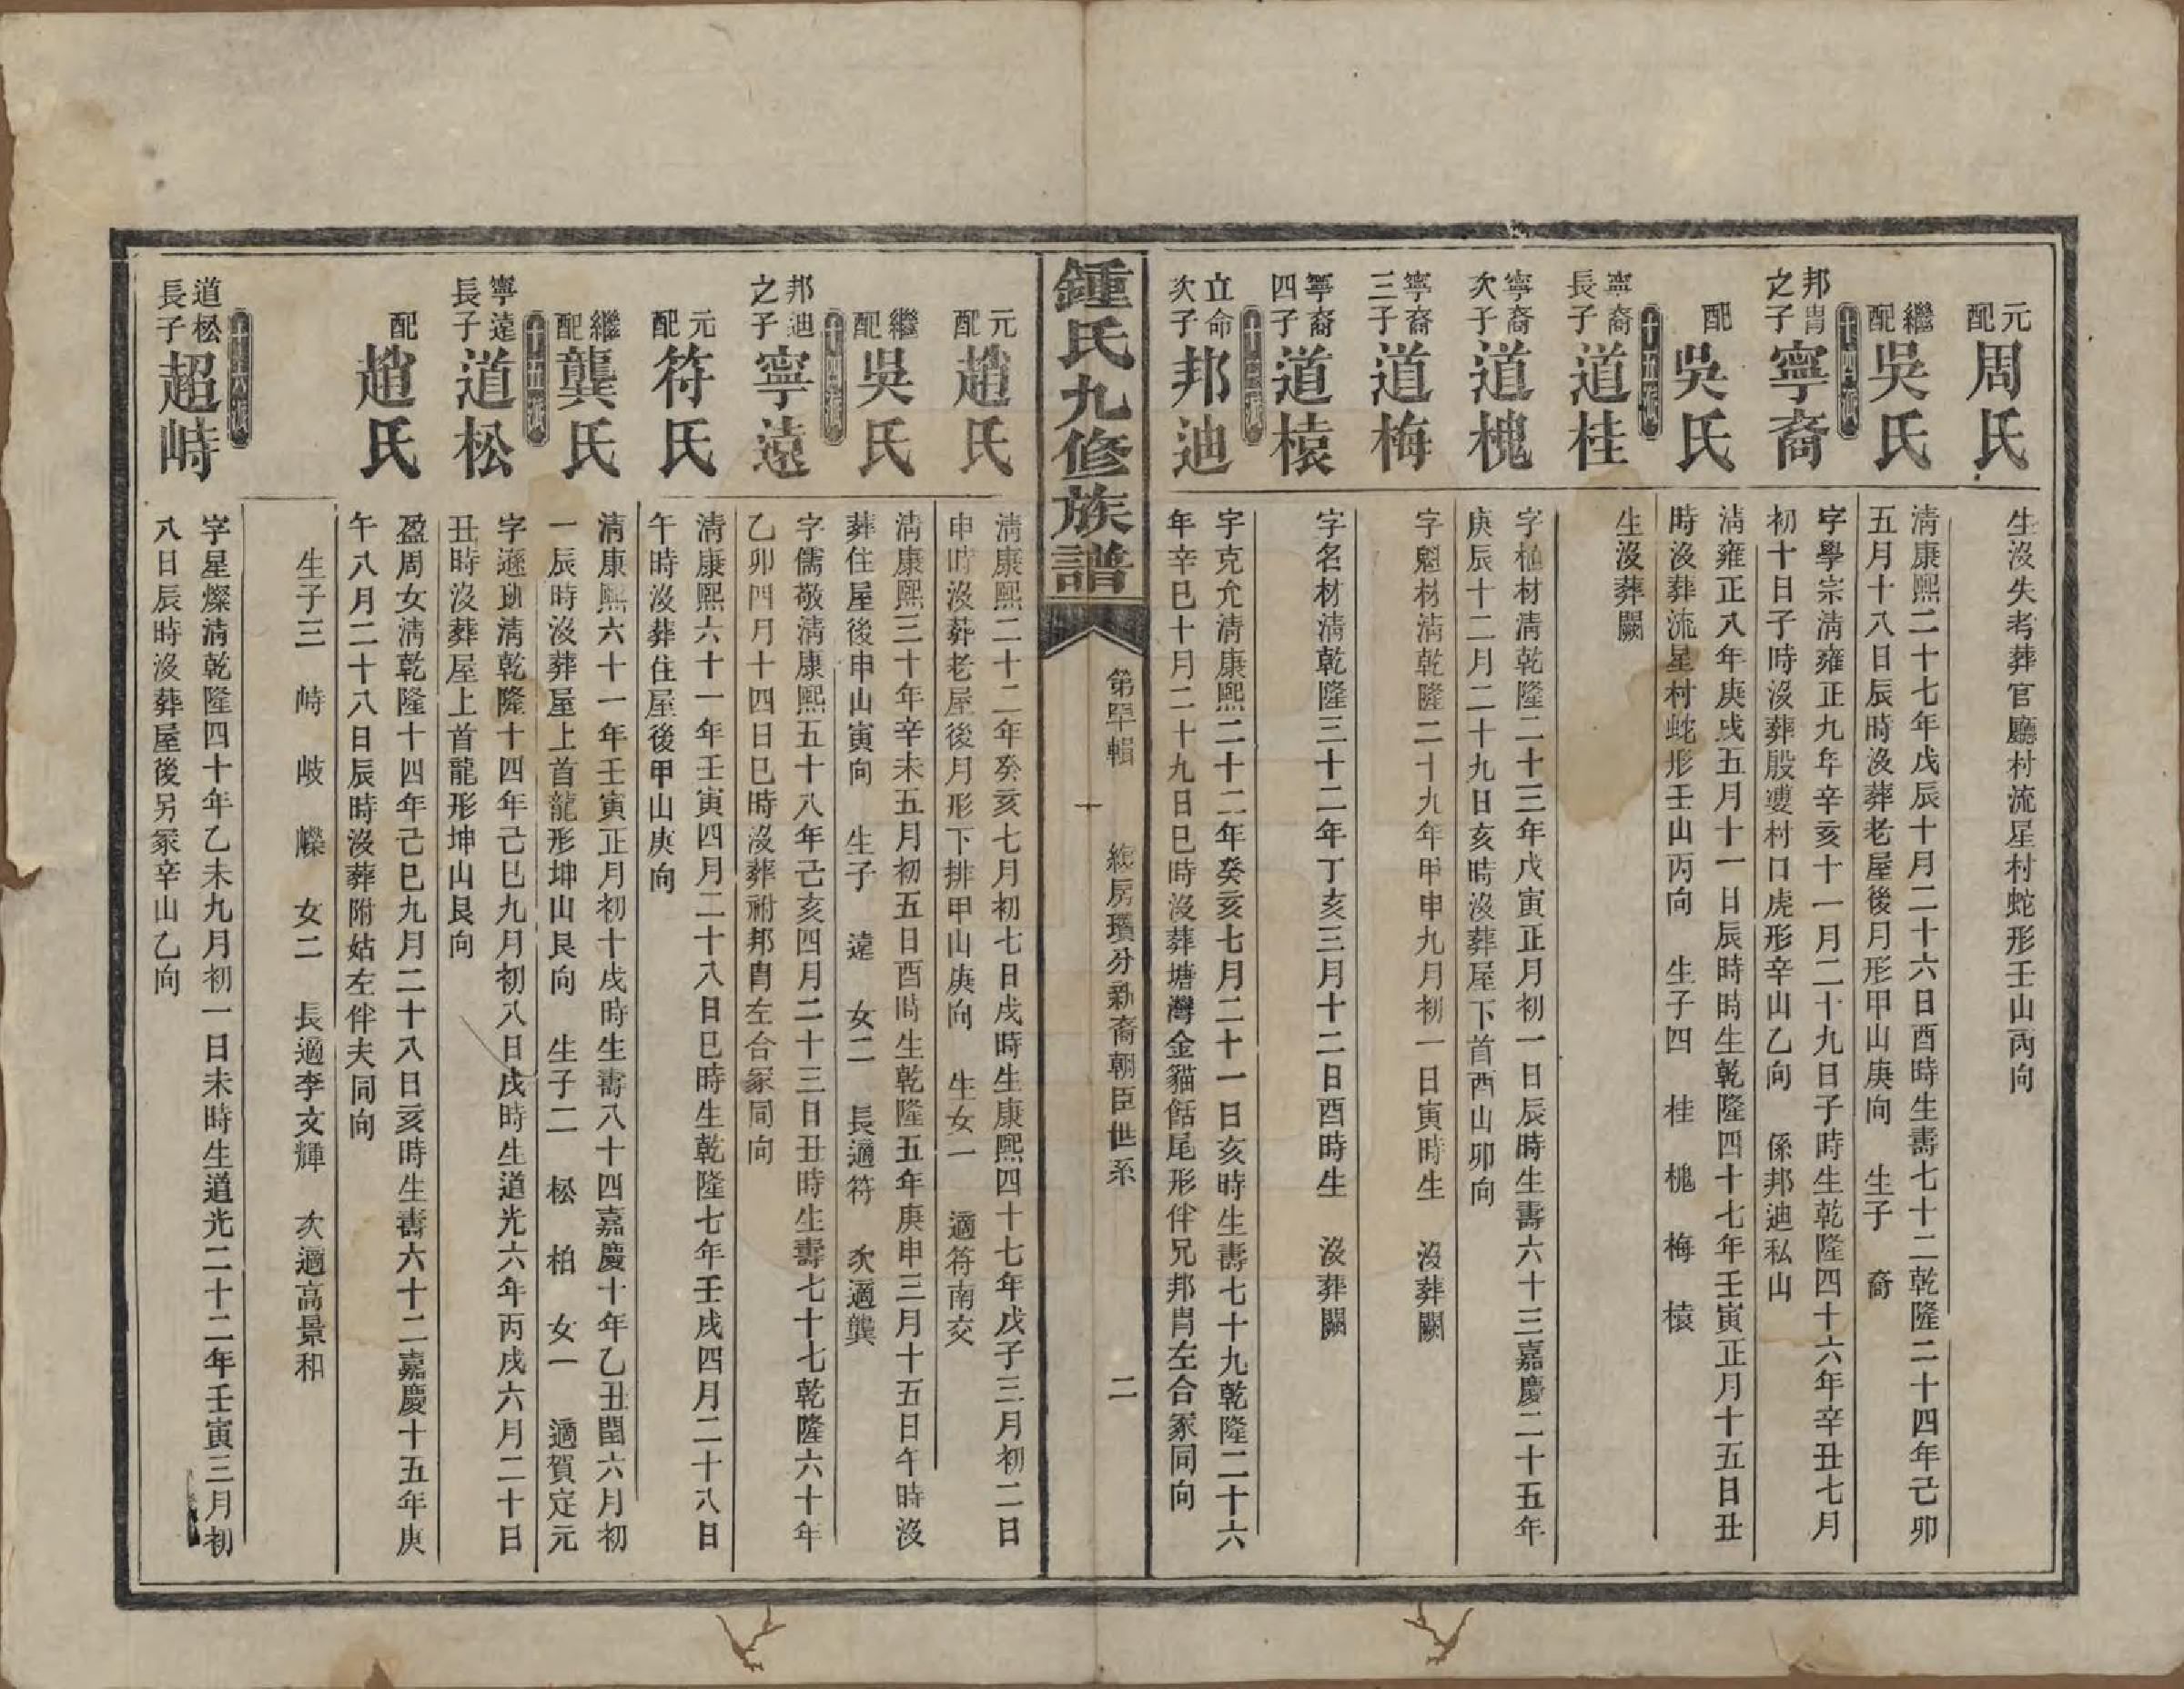 元配
周氏
生沒失考葬官廳村流星村蛇形壬山丙向
繼配
吳氏
清康熙二十七年戊辰十月二十六日酉時生壽七十二乾隆二十四年己卯
五月十八日辰時沒葬老屋後月形甲山庚向　生子　裔
十四派
邦胄之子
寧裔
字學宗清雍正九年辛亥十一月二十九日子時生乾隆四十六年辛丑七月
初十日子時沒葬殷䢼村口虎形辛山乙向　係邦迪私山
配
吳氏
清雍正八年庚戌五月十一日辰時時生乾隆四十七年壬寅正月十五日丑
時沒葬流星村蛇形壬山丙向　生子四　桂　槐　梅　榱
十五派
寧裔長子
道桂
生沒葬闕
寧裔次子
道槐
字植材清乾隆二十三年戊寅正月初一日辰時生壽六十三嘉慶二十五年
庚辰十二月二十九日亥時沒葬屋下首酉山卯向
寧裔三子
道梅
字魁材清乾隆二十九年甲申九月初一日寅時生　沒葬闕
寧裔四子
道榱
字名材清乾隆三十二年丁亥三月十二日酉時生　沒葬闕
十三派
立命次子
邦迪
字克允清康熙二十二年癸亥七月二十一日亥時生壽七十九乾隆二十六
年辛巳十月二十九日巳時沒葬塘灣金貓餂尾形伴兄邦胄左合冢同向
鍾氏九修族譜
第單輯
十
總房瓚分新裔朝臣世系
二
元配
趙氏
清康熙二十二年癸亥七月初七日戌時生康熙四十七年戊子三月初二日
申時沒葬老屋後月形下排甲山庚向　生女一　適符南交
繼配
吳氏
清康熙三十年辛未五月初五日酉時生乾隆五年庚申三月十五日午時沒
葬住屋後申山寅向　生子　遠　女二　長適符　次適龔
十四派
邦迪之子
寧遠
字儒敬清康熙五十八年己亥四月二十三日丑時生壽七十七乾隆六十年
乙卯四月十四日巳時沒葬祔邦胄左合冢同向
元配
符氏
清康熙六十一年壬寅四月二十八日巳時生乾隆七年壬戌四月二十八日
午時沒葬住屋後甲山庚向
繼配
龔氏
清康熙六十一年壬寅正月初十戌時生壽八十四嘉慶十年乙丑閏六月初
一辰時沒葬屋上首龍形坤山艮向　生子二　松　柏　女一　適賀定元
十五派
寧遠長子
道松
字遜班清乾隆十四年己巳九月初八日戌時生道光六年丙戌六月二十日
丑時沒葬屋上首龍形坤山艮向
配
趙氏
盈周女清乾隆十四年己巳九月二十八日亥時生壽六十二嘉慶十五年庚
午八月二十八日辰時沒葬附姑左伴夫同向
生子三　峙　岐　㠂　女二　長適李文輝　次適高景和
十六派
道松長子
超峙
字星燦清乾隆四十年乙未九月初一日未時生道光二十二年壬寅三月初
八日辰時沒葬屋後另冢辛山乙向